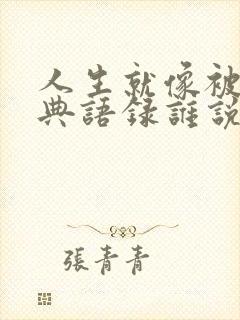 人生就像被
典語錄誰說
張青青